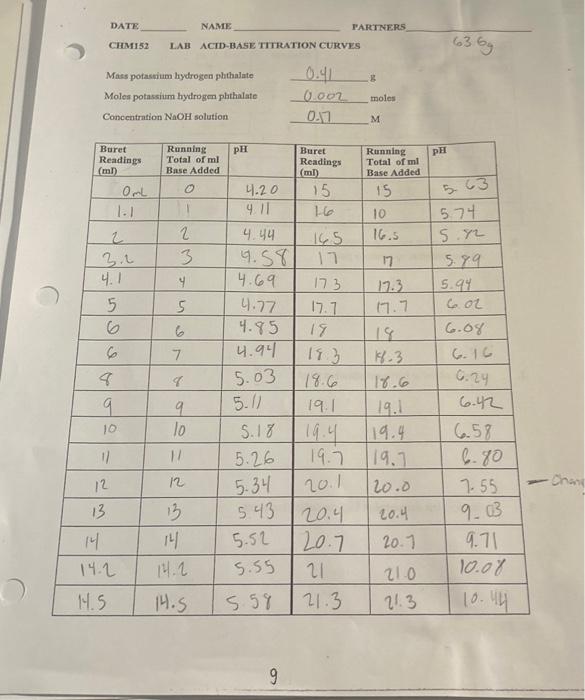 DATE NAME PARTNERS
CHM152 LAB ACID-BASE TITRATION CURVES 63.6g
Mass potassium hydrogen phthalate 0.41 g
Moles potassium hydrogen phthalate 0.002 moles
Concentration NaOH solution 0.17 M
Buret Readings (ml) Running Total of ml Base Added pH Buret Readings (ml) Running Total of ml Base Added pH
0mL 0 4.20 15 15 5.63
1.1 1 4.11 16 10 5.74
2 2 4.44 16.5 16.5 5.82
3.2 3 4.58 17 17 5.89
4.1 4 4.69 17.3 17.3 5.94
5 5 4.77 17.7 17.7 6.02
6 6 4.85 18 18 6.08
6 7 4.94 18.3 18.3 6.16
8 8 5.03 18.6 18.6 6.24
9 9 5.11 19.1 19.1 6.42
10 10 5.18 19.4 19.4 6.58
11 11 5.26 19.7 19.7 6.80
12 12 5.34 20.1 20.0 7.55
13 13 5.43 20.4 20.4 9.03
14 14 5.52 20.7 20.7 9.71
14.2 14.2 5.55 21 21.0 10.08
14.5 14.5 5.58 21.3 21.3 10.44
9